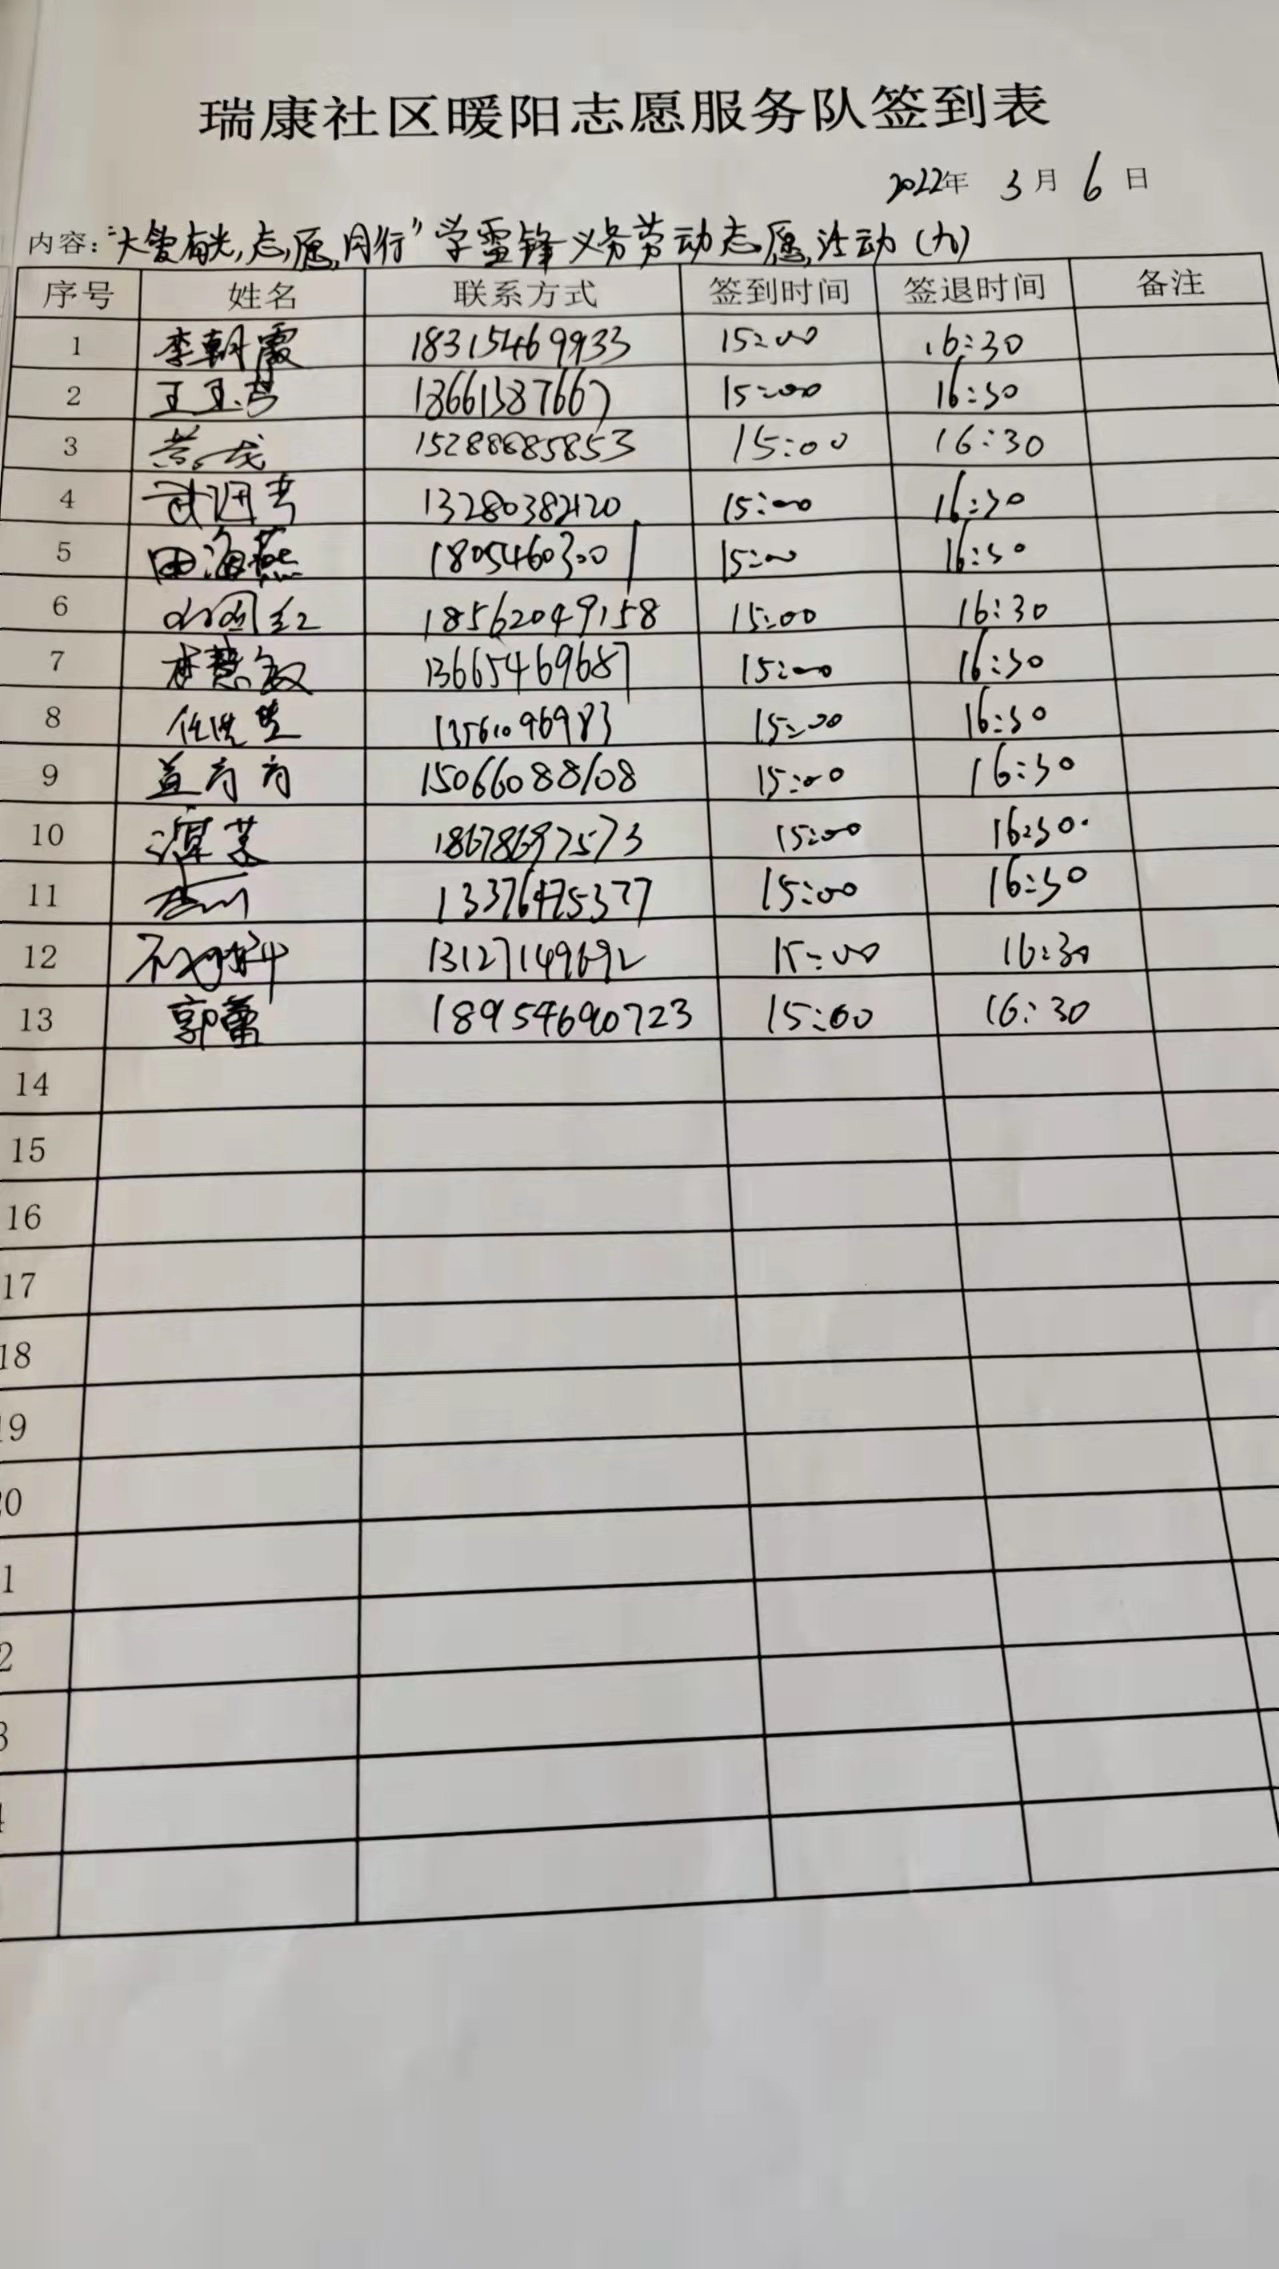 瑞康社区暖阳志愿服务队签到表
2022年 3月 6日
内容：“大爱有光,志愿同行”学雷锋义务劳动志愿活动(九)
序号 姓名 联系方式 签到时间 签退时间 备注
1 李朝霞 18315469933 15:00 16:30
2 13661387667 15:00 16:30
3 15288885853 15:00 16:30
4 13280382120 15:00 16:30
5 田海燕 18054603001 15:00 16:30
6 18562049158 15:00 16:30
7 慧敏 13665469687 15:00 16:30
8 13561096983 15:00 16:30
9 15066088108 15:00 16:30
10 18678697573 15:00 16:30
11 13376475377 15:00 16:30
12 13127149692 15:00 16:30
13 郭蕾 18954690723 15:00 16:30
14
15
16
17
18
19
20
1
2
3
4